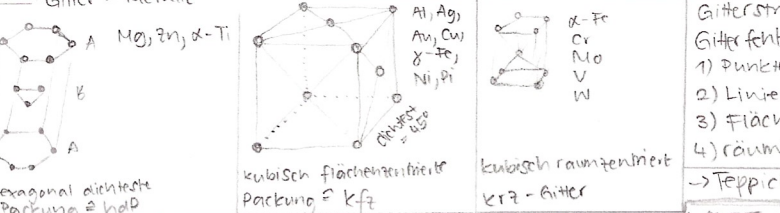 Gitter
A
Mg, Zn, α-Ti
B
A
exagonal dichteste
Packung ≙ hdP
Al, Ag,
Au, Cu,
γ-Fe,
Ni, Pi
dichtest
= 45°
kubisch flächenzentrierte
Packung ≙ kfz
α-Fe
Cr
Mo
V
W
kubisch raumzentriert
krz - Gitter
Gitterstr
Gitterfehl
1) Punkt
2) Linie
3) Fläch
4) räum
→ Teppic